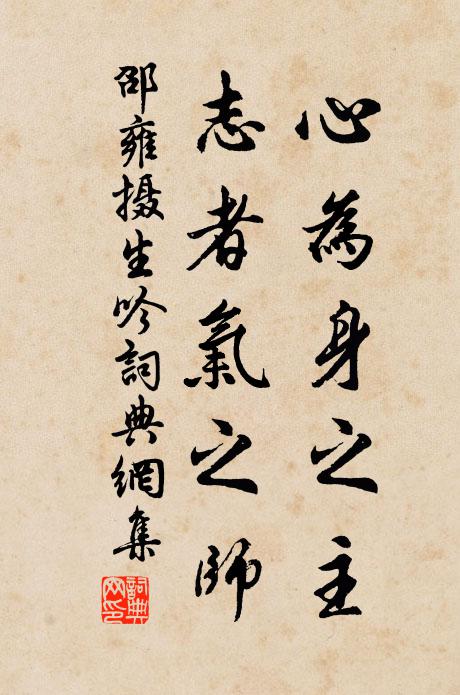 心為身之主
志者氣之師
邵雍摄生吟詞典網集
詞典网印